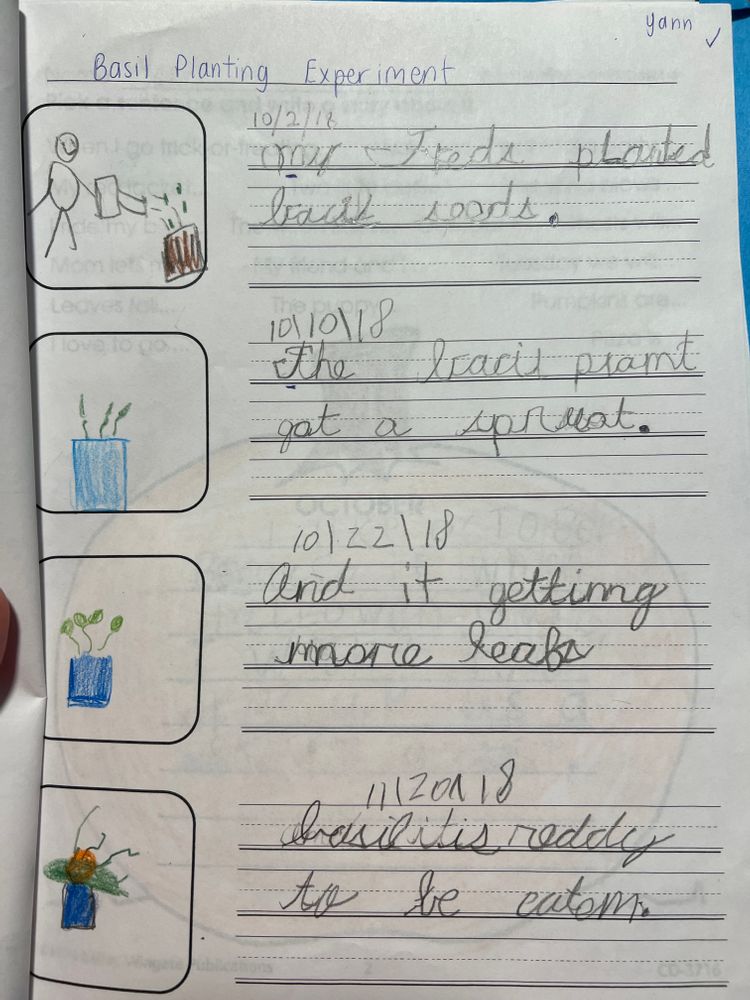 yann
Basil Planting Experiment
10/2/18
my Freds planted
bacil soods.
10\10\18
The bracil pramt
got a spruot.
10\22\18
And it gettinng
more leafs
11\20\18
basil itis reddy
to be eatom.
OCTOBER
2
CD-3716